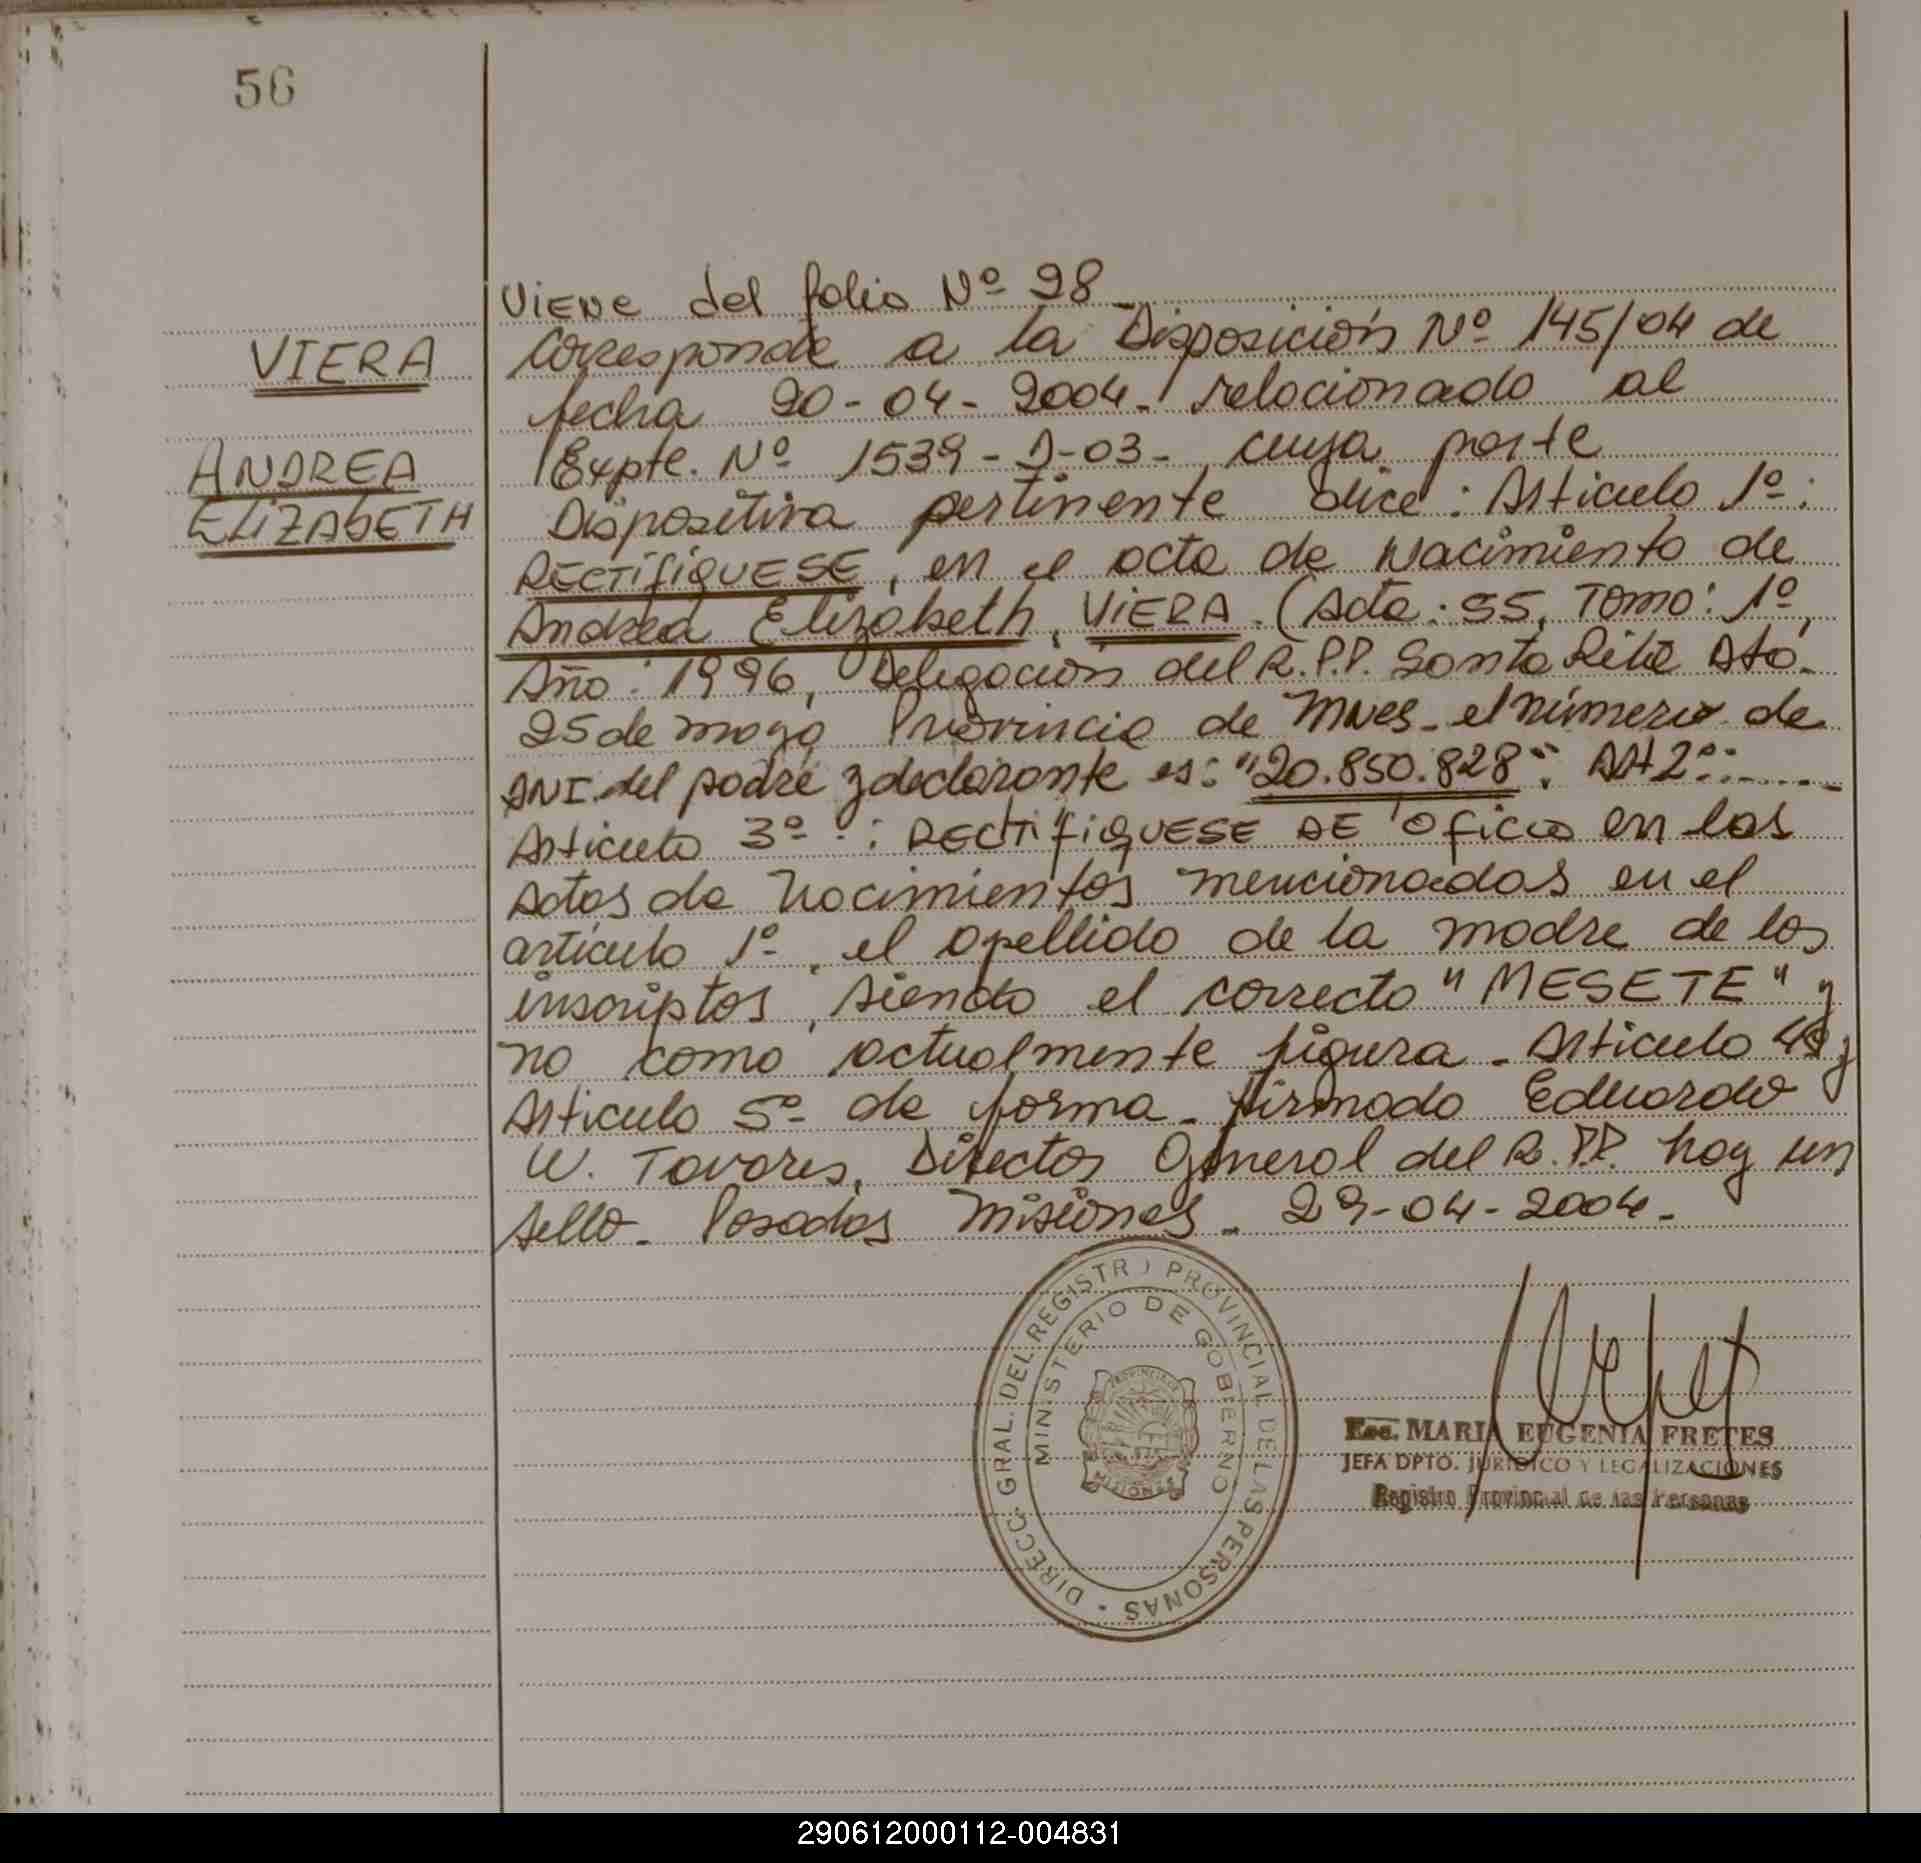 56
VIERA
ANDREA
ELIZABETH
Viene del folio Nº 28
Corresponde a la Disposición Nº 145/04 de
fecha 20-04-2004- relacionado al
Expte. Nº 1539-D-03- cuya parte
Dispositiva pertinente dice: Articulo 1º:
RECTIFIQUESE, en el acta de Nacimiento de
Andrea Elizabeth, VIERA. (Acta: 55, Tomo: 1º,
Año: 1996, Delegación del R.P.P. Santa Rita Dto.
25 de mayo Provincia de Mnes- el número de
DNI. del padre y declarante es: "20.850.828". Art 2º:
Articulo 3º-: RECTIFIQUESE DE Oficio en las
Actas de Nacimientos mencionadas en el
artículo 1º, el apellido de la madre de los
inscriptos, siendo el correcto "MESETE" y
no como actualmente figura- Articulo 4º y
Articulo 5º de forma- firmado Eduardo
W. Tavares, Director General del R.P.P. hay un
sello- Posadas Misiones- 29-04-2004-
DIRECC. GRAL. DEL REGISTRO PROVINCIAL DE LAS PERSONAS
MINISTERIO DE GOBIERNO
PROVINCIA DE
MISIONES
Esc. MARIA EUGENIA FRETES
JEFA DPTO. JURIDICO Y LEGALIZACIONES
Registro Provincial de las Personas
290612000112-004831